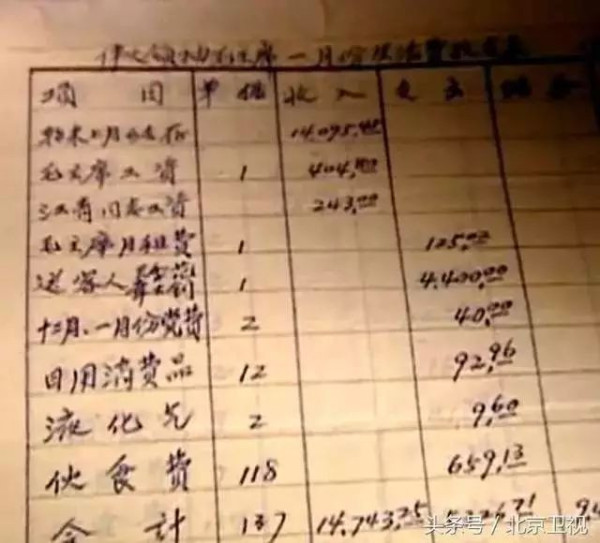 伟大领袖毛主席一月份生活费收支表
项目 单据 收入 支出 结余
上月结存 14,095.45
毛主席工资 1 404.80
江青同志工资 243.00
毛主席月租费 1 125.02
送客人 1 4,400.00
十二月、一月份党费 2 40.00
日用消费品 12 92.96
液化气 2 9.60
伙食费 118 659.13
合计 137 14,743.25 5,326.71
头条号/北京卫视